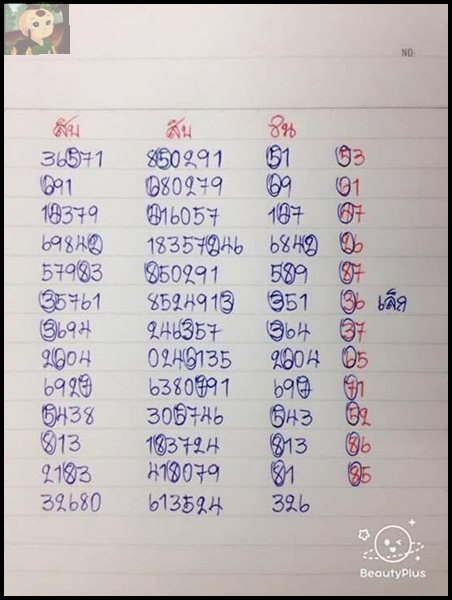 NO:
สิบ สิบ ชน
36571 850291 51 53
691 680279 69 61
17379 716057 177 77
69842 18357246 6842 26
57983 850291 589 87
35761 8524913 351 36 เล็ก
3694 246357 364 37
2604 0246135 2604 65
6927 6380791 697 71
5438 305746 543 52
813 183724 813 86
2183 418079 81 85
32680 613524 326
BeautyPlus